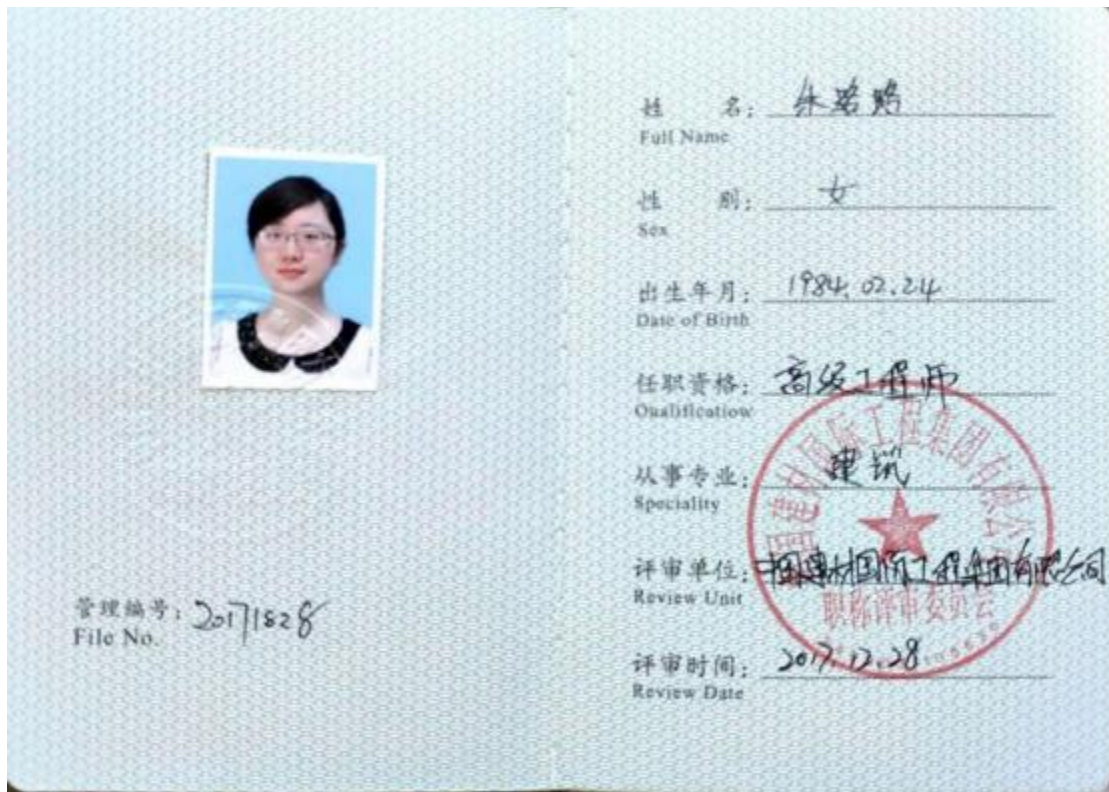 管理编号：20171828
File No.
姓 名：朱璐璐
Full Name
性 别：女
Sex
出生年月：1984.02.24
Date of Birth
任职资格：高级工程师
Qualification
从事专业：建筑
Speciality
评审单位：中国建材国际工程集团有限公司
Review Unit
评审时间：2017.12.28
Review Date
中国建材国际工程集团有限公司
职称评审委员会